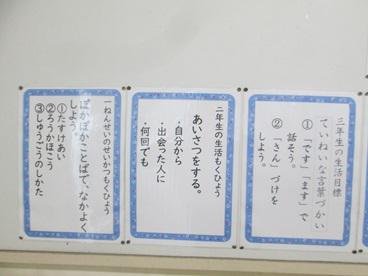 三年生の生活目標
ていねいな言葉づかい
①「です」「ます」で
話そう。
②「さん」づけを
しよう。
二年生の生活もくひょう
あいさつをする。
・自分から
・出会った人に
・何回でも
一ねんせいのせいかつもくひょう
ぽかぽかことばで、なかよく
しよう。
①たすけあい
②ろうかほこう
③しゅうごうのしかた